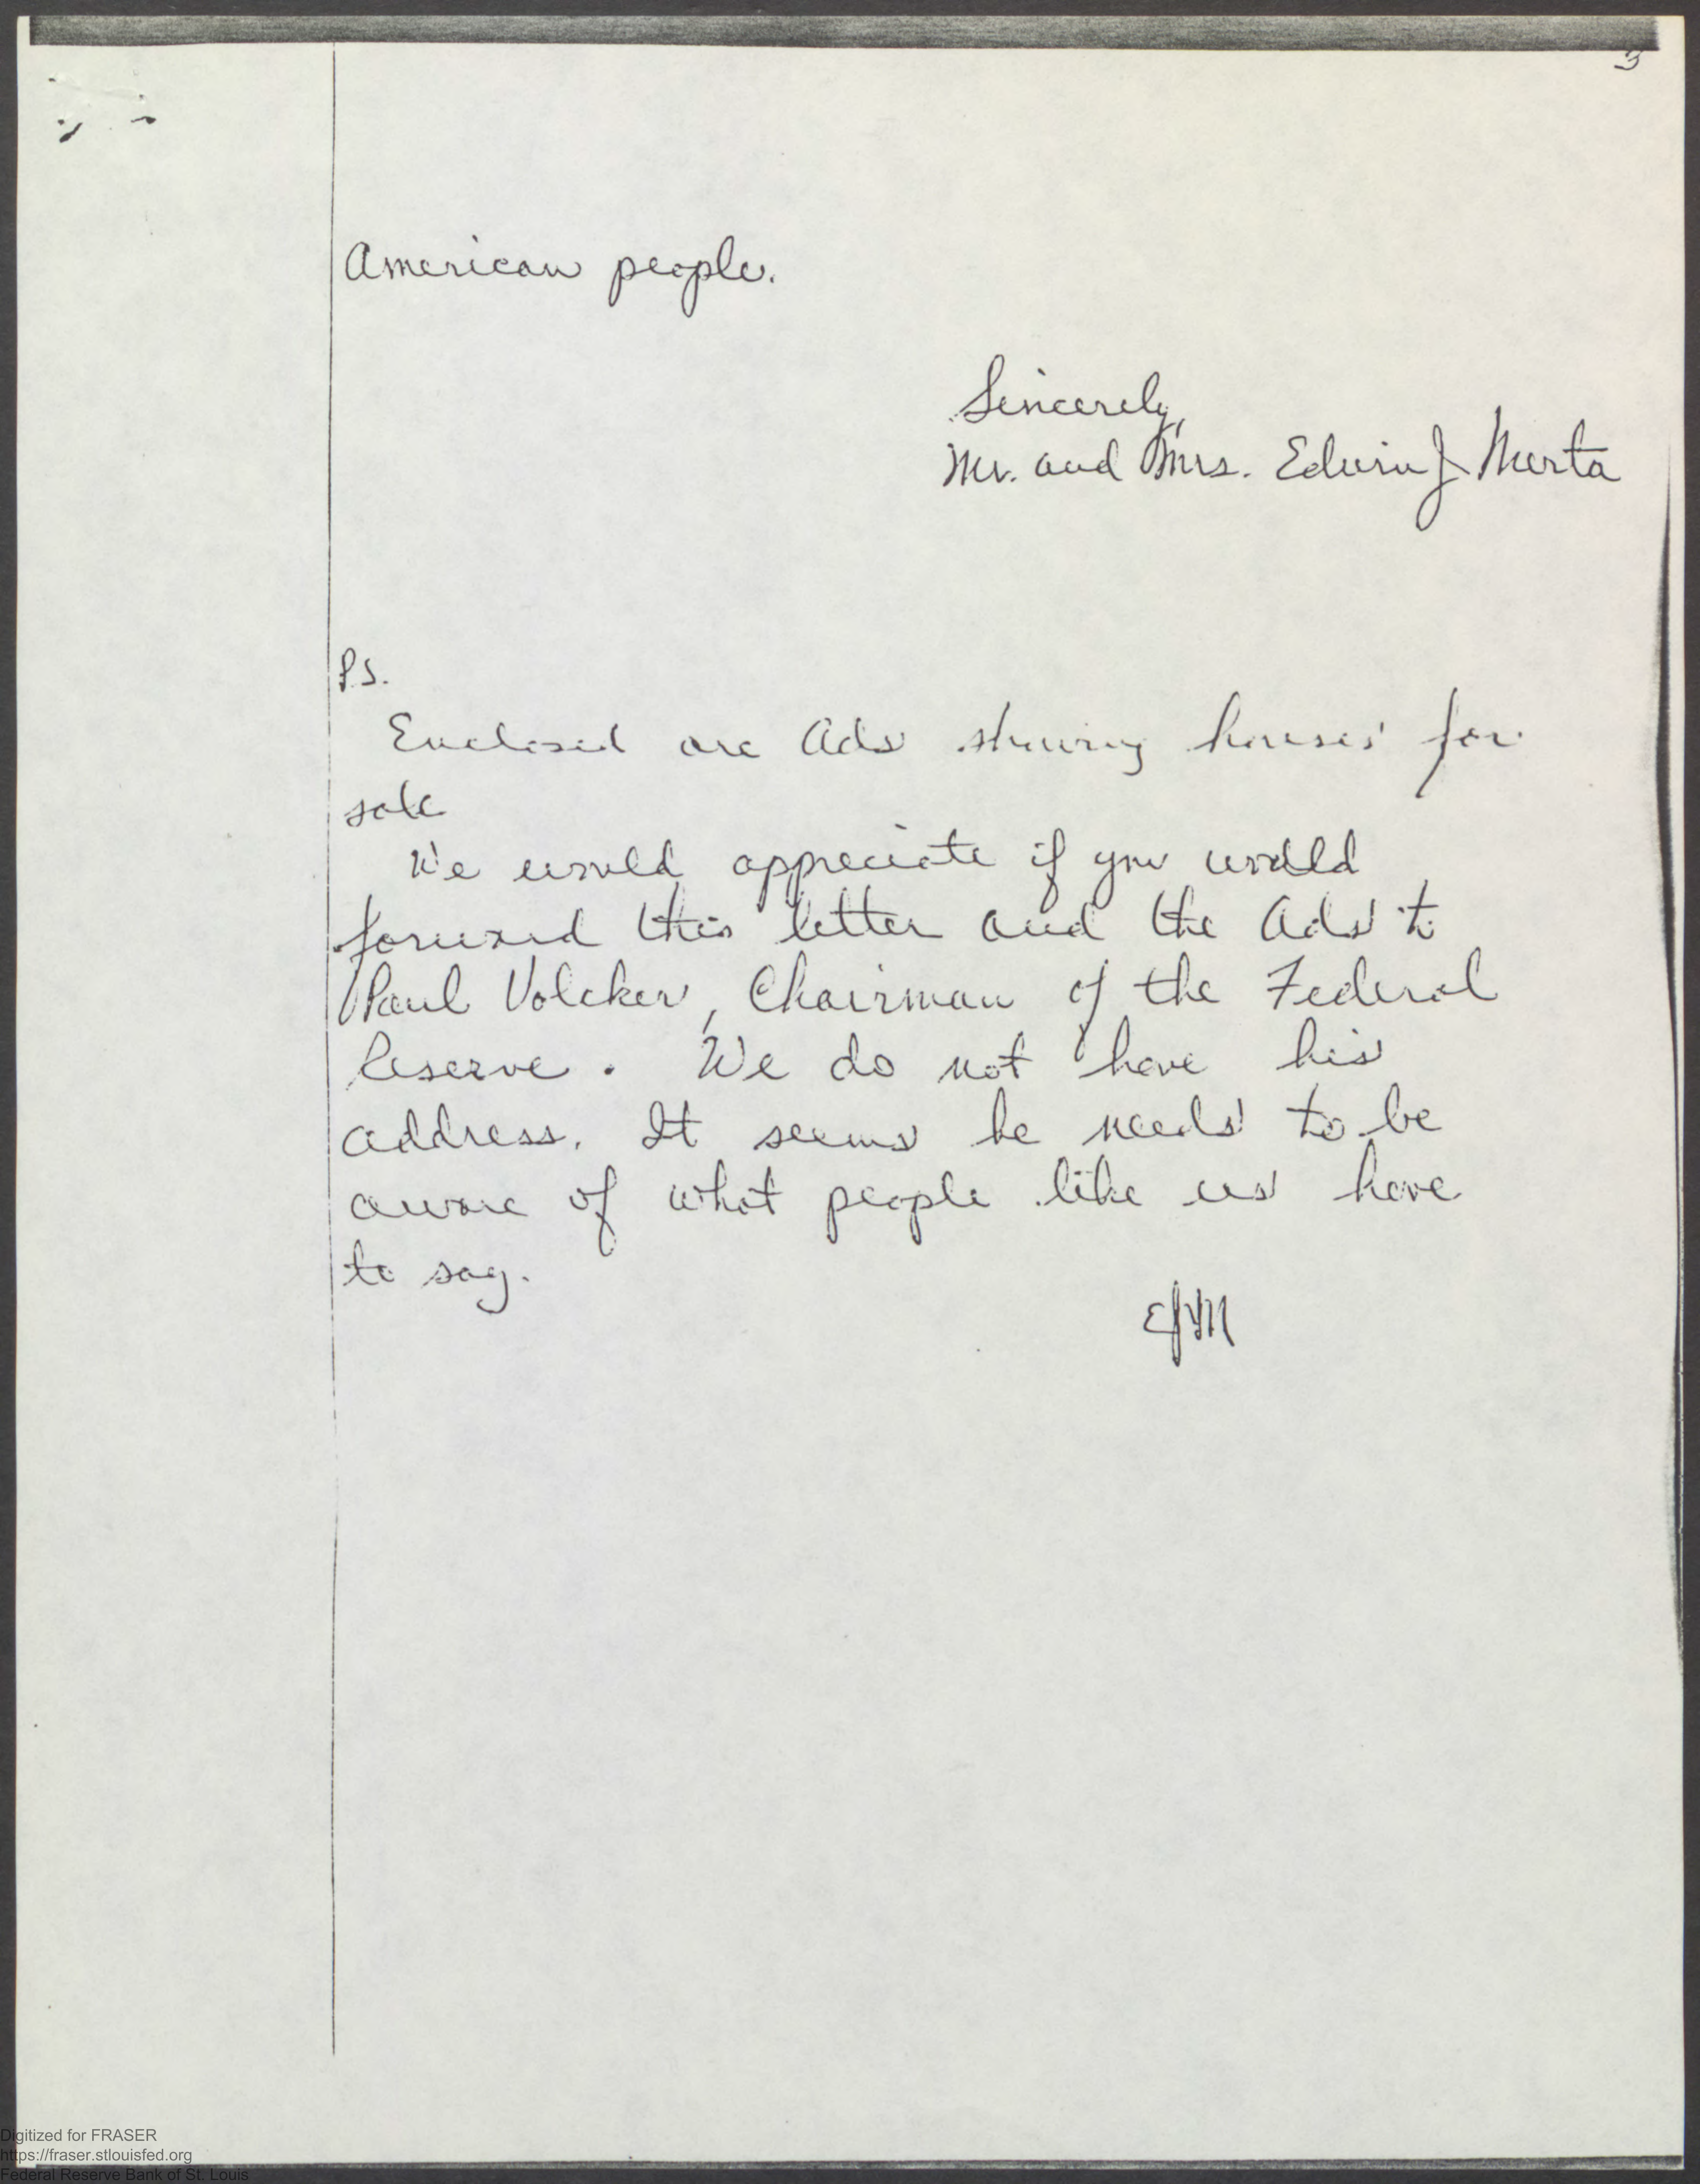 3
American people.
Sincerely,
Mr. and Mrs. Edwin J Merta
P.S.
Enclosed are Ads showing houses for
sale
We would appreciate if you would
forward this letter and the Ads to
Paul Volcker, Chairman of the Federal
Reserve. We do not have his
address. It seems he needs to be
aware of what people like us have
to say.
EJM
Digitized for FRASER
https://fraser.stlouisfed.org
Federal Reserve Bank of St. Louis